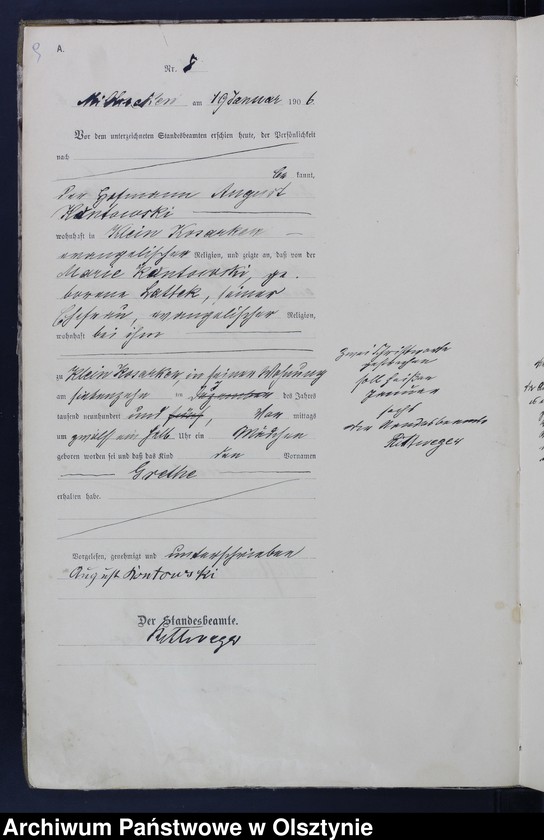 A.
Nr. 8
am 19 Januar 1906.
Vor dem unterzeichneten Standesbeamten erschien heute, der Persönlichkeit
nach
be kannt,
der Hofmann August
Kontowski
wohnhaft in Klein Kosarken
evangelischer Religion, und zeigte an, daß von der
Marie Kontowski, ge-
borene Lattek, seiner
Ehefrau, evangelischer Religion,
wohnhaft bei ihm
zu Klein Kosarken, in seiner Wohnung
am ten des Jahres
tausend neunhundert und fünf, Vor mittags
um zwölf ein halb Uhr ein Mädchen
geboren worden sei und daß das Kind den Vornamen
Grethe
erhalten habe.
Vorgelesen, genehmigt und unterschrieben
August Kontowski
Der Standesbeamte.
Rittweger
zwei Schriftworte
gestrichen
soll heißen
Januar
sechs
der Standesbeamte
Rittweger
Archiwum Państwowe w Olsztynie